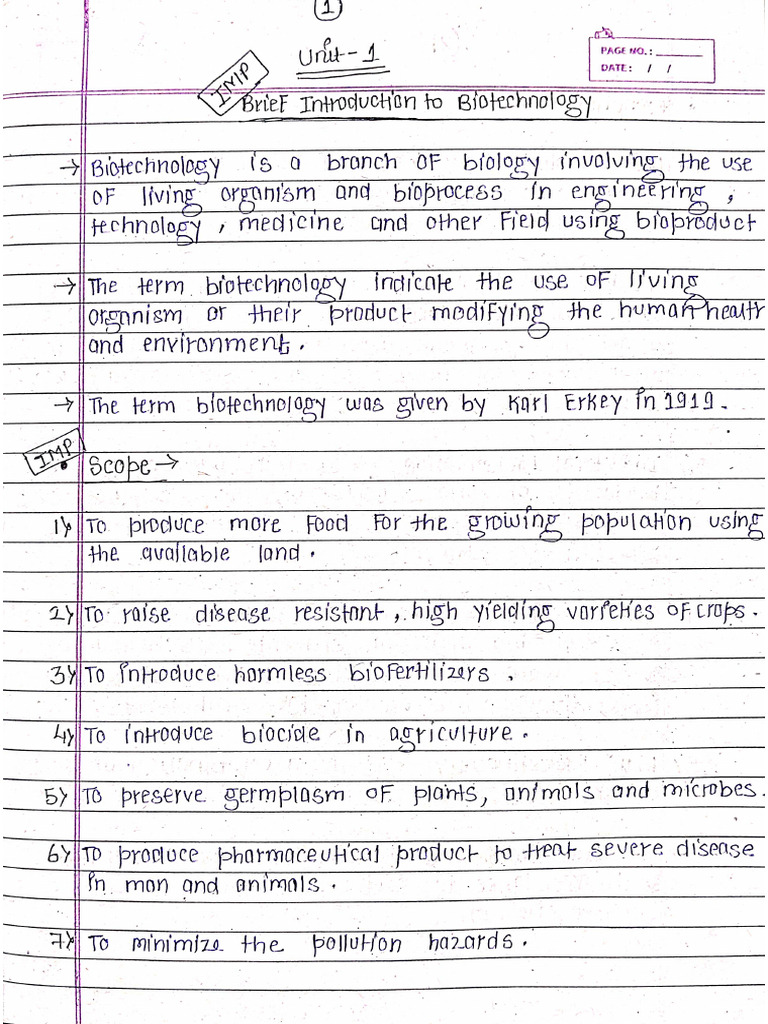 1
Unit-1
PAGE NO.:
DATE: / /
IMP
Brief Introduction to Biotechnology
→ Biotechnology is a branch of biology involving the use
of living organism and bioprocess in engineering,
technology, medicine and other field using bioproduct
→ The term biotechnology indicate the use of living
organism or their product modifying the human health
and environment.
→ The term biotechnology was given by Karl Erkey in 1919.
IMP
• Scope →
1) To produce more food for the growing population using
the available land.
2) To raise disease resistant, high yielding varieties of crops.
3) To introduce harmless biofertilizers.
4) To introduce biocide in agriculture.
5) To preserve germplasm of plants, animals and microbes.
6) To produce pharmaceutical product to treat severe disease
in man and animals.
7) To minimize the pollution hazards.